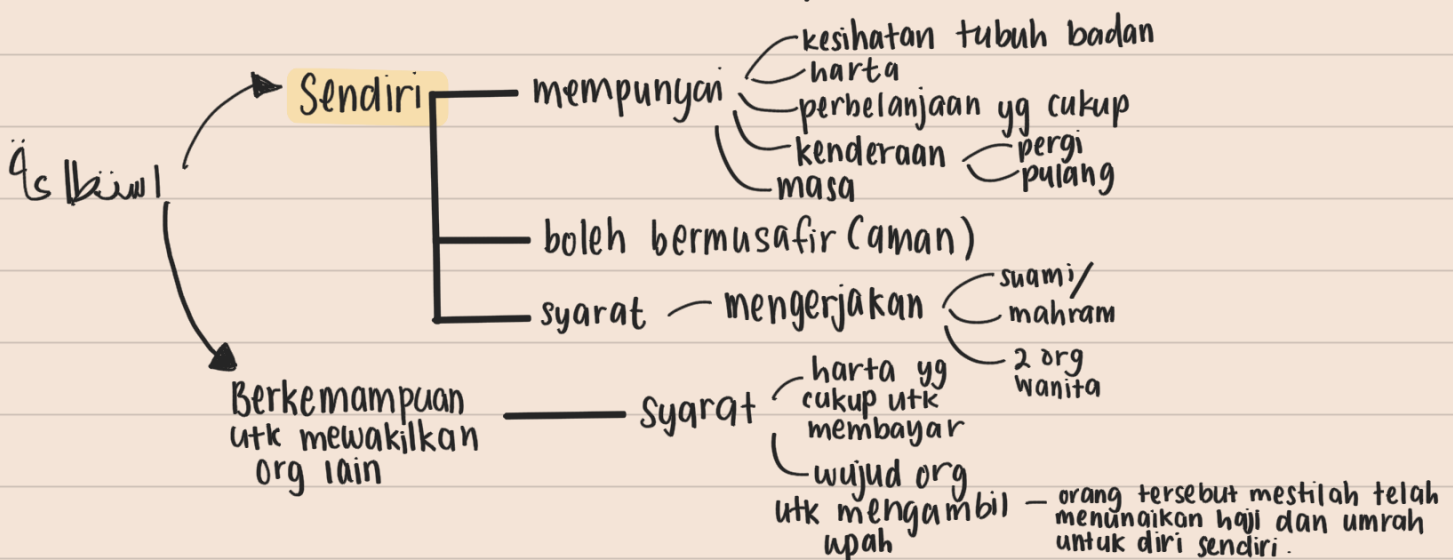 kesihatan tubuh badan
harta
Sendiri
mempunyai
perbelanjaan yg cukup
kenderaan
pergi
pulang
masa
استطاعة
boleh bermusafir (aman)
syarat
mengerjakan
suami/
mahram
2 org
wanita
Berkemampuan
utk mewakilkan
org lain
syarat
harta yg
cukup utk
membayar
wujud org
utk mengambil
upah
– orang tersebut mestilah telah
menunaikan haji dan umrah
untuk diri sendiri.